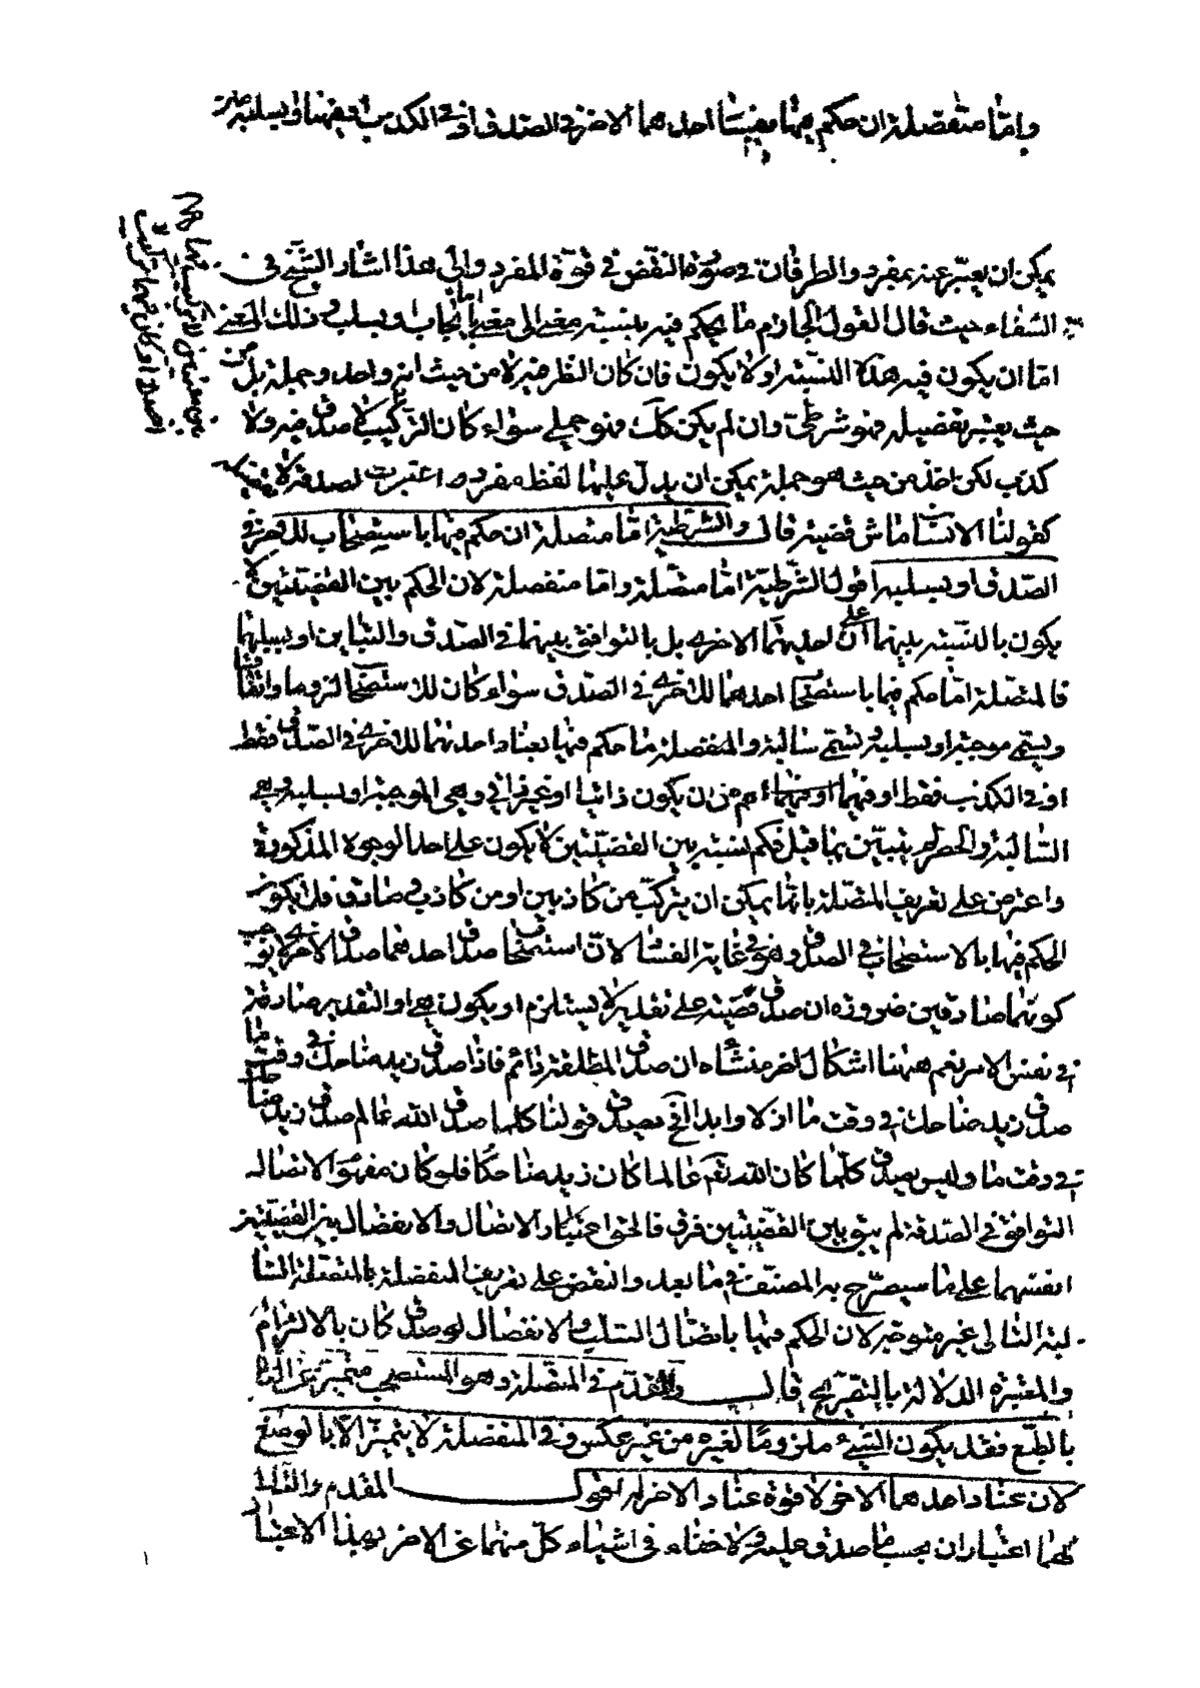 واما منفصلة ان حكم فيها بعناد احدهما الاخر في الصدق او في الكذب او فيهما او بسلبه
يمكن ان يعبر عنه بمفرد والطرفان في صورة النقض في قوة المفرد والى هذا اشار الشيخ في
الشفاء حيث قال القول الجازم ما يحكم فيه بنسبة معنى الى معنى بايجاب او بسلب وذلك المعنى
اما ان يكون فيه هذه النسبة او لا يكون فان كان النظر فيه لا من حيث انه واحد وجملة بل من
حيث يعتبر تفصيله فهو شرطى وان لم يكن كك فهو حملى سواء كان التركيب لا صدق فيه ولا
كذب لكن اخذ من حيث هو جملة يمكن ان يدل عليها لفظ مفرد و اعتبرت لصدقه لا
كقولنا الانسان ماش قضية قال والشرطية اما متصلة ان حكم فيها باستصحاب للاخرى في
الصدق او بسلبه اقول الشرطية اما متصلة واما منفصلة لان الحكم بين القضيتين لا
يكون بالنسبة بينهما ان احديهما الاخرى بل بالتوافق بينهما في الصدق والتباين او بسلبهما
فالمتصلة ما حكم فيها باستصحاب احدهما للاخرى في الصدق سواء كان للاستصحاب لزوما واتفاقا
ويسمى موجبة او بسلبه ويسمى سالبة والمنفصلة ما حكم فيها بعناد احديهما للاخرى في الصدق فقط
او في الكذب فقط او فيهما اعم من ان يكون ذاتيا او غير ذاتى وهي الموجبة او بسلبه وهي
السالبة والحصر لم يتبين بما قيل فكم نسبة بين القضيتين لا يكون على احد الوجوه المذكورة
واعترض على تعريف المتصلة بانها يمكن ان يتركب من كاذبين او من كاذب وصادق فلا يكون
الحكم فيها بالاستصحاب في الصدق وهو في غاية الفساد لان استصحاب صدق احدهما صدق الاخرى لا يوجب
كونهما صادقين ضرورة ان صدق قضية على تقدير لا يستلزم ان يكون هي او التقدير صادقة
في نفس الامر نعم ههنا اشكال اخر منشأه ان صدق المطلقة دائم فاذا صدق زيد ضاحك في وقت ما
صدق زيد ضاحك في وقت ما ازلا وابدا فح يصدق قولنا كلما صدق الله عالم صدق زيد ضاحك
في وقت ما وليس يصدق كلما كان الله تعم عالما كان زيد ضاحكا فلو كان مفهوم الاتصال
التوافق في الصدق لم يبق بين القضيتين فرق فالحق اعتبار الاتصال والانفصال بين القضيتين
انفسهما على ما سيصرح به المصنف فيما بعد والنقض على تعريف المنفصلة بالمتصلة السا
لبة التالى غير متوجه لان الحكم فيها باتصال السلب والانفصال لو صدق كان بالالتزام
والمعتبرة الدلالة بالتصريح قال والمقدم في المتصلة وهو المستصحب متميز عن التالى
بالطبع فقد يكون الشيء ملزوما لغيره من غير عكس وفي المنفصلة لا يتميز الا بالوضع
لان عناد احدهما الاخر لا قوة عناد الاخر له اقول المقدم والتالى
لهما اعتباران بحسب ما صدق عليه ولا خفاء في اشتباه كل منهما عن الاخر بهذا الاعتبار